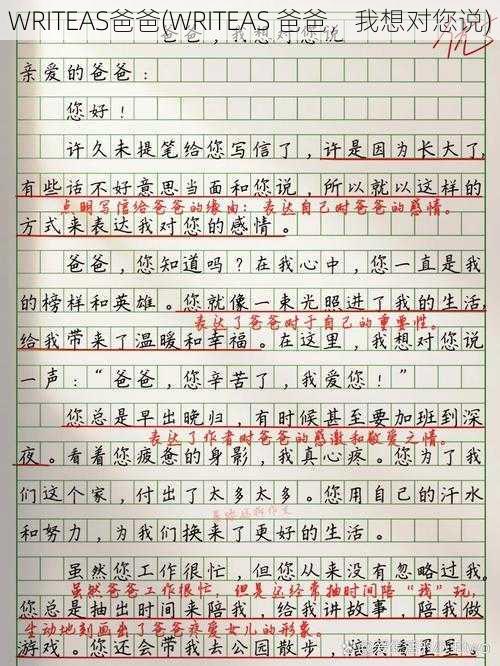 WRITEAS爸爸(WRITEAS 爸爸，我想对您说)
爸爸，我想对您说
优
亲爱的爸爸：
您好！
许久未提笔给您写信了，许是因为长大了,
有些话不好意思当面和您说，所以就以这样的
点明写信给爸爸的缘由：表达自己对爸爸的感情。
方式来表达我对您的感情。
爸爸，您知道吗？在我心中，您一直是我
的榜样和英雄。您就像一束光照进了我的生活,
表达了爸爸对于自己的重要性。
给我带来了温暖和幸福。在这里，我想对您说
一声：“爸爸，您辛苦了，我爱您！”
您总是早出晚归，有时候甚至要加班到深
表达了作者对爸爸的感激和敬爱之情。
夜。看着您疲惫的身影，我真心疼。您为了我
们这个家，付出了太多太多。您用自己的汗水
和努力，为我们换来了更好的生活。
虽然您工作很忙，但您从来没有忽略过我。
虽然爸爸工作很忙，但是还经常抽时间陪“我”玩,
您总是抽出时间来陪我，给我讲故事，陪我做
生动地刻画出了爸爸疼爱女儿的形象。
游戏。您还会带我去公园散步，陪我看星星。